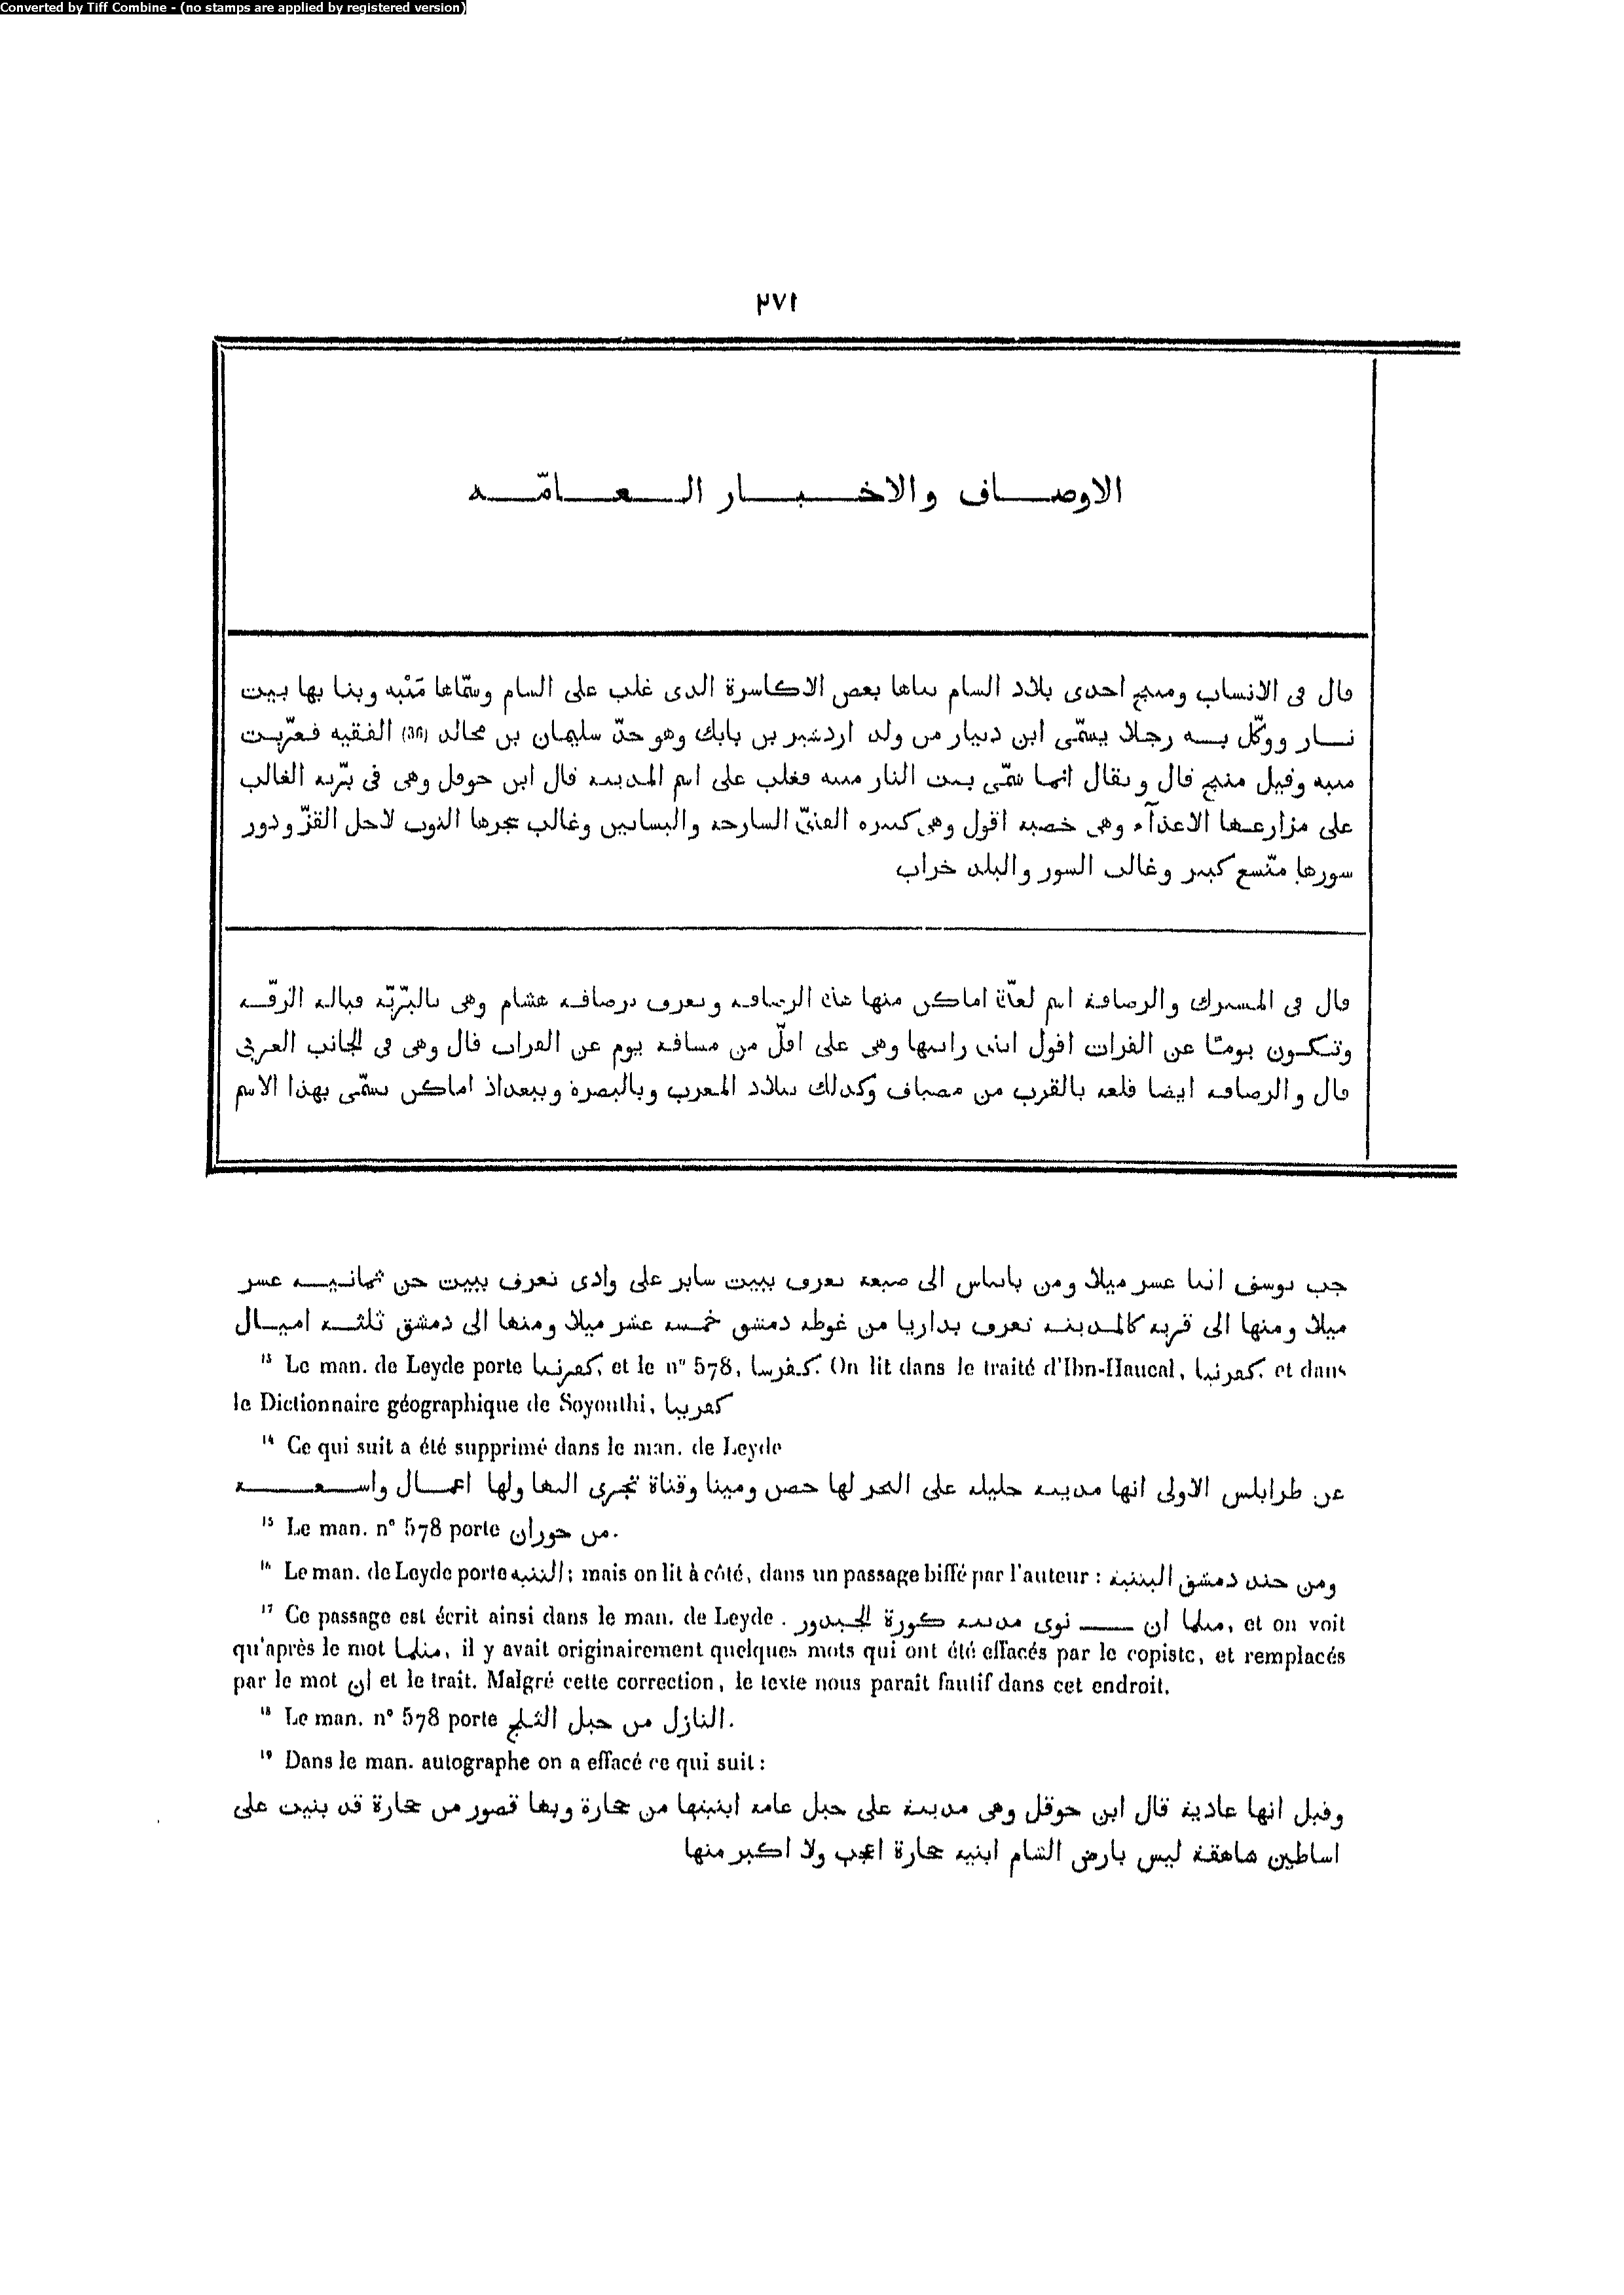 Converted by Tiff Combine - (no stamps are applied by registered version)
٢٧١
الاوصاف والاخبار العامّه
قال فى الانساب ومنبج احدى بلاد الشام بناها بعض الاكاسرة الذى غلب على الشام وسمّاها مَنْبه وبنا بها بيت
نار ووكّل به رجلا يسمّى ابن دينار من ولد اردشير بن بابك وهو جدّ سليمان بن مجالد (36) الفقيه فعرّبت
منبه وقيل منبج قال ويقال انما سمّى بيت النار منبه فغلب على اسم المدينه قال ابن حوقل وهى فى برّيه الغالب
على مزارعها الاعذآء وهى خصبه اقول وهى كثيره القنىّ السارحه والبساتين وغالب شجرها التوت لاجل القزّ ودور
سورها متّسع كبير وغالب السور والبلد خراب
قال فى المشترك والرصافة اسم لعدّة اماكن منها هذه الرصافه وتعرف برصافه هشام وهى بالبرّيّه قباله الرقّه
وتكون يومًا عن الفرات اقول اننى رايتها وهى على اقلّ من مسافه يوم عن الفرات قال وهى فى الجانب الغربى
قال والرصافه ايضا قلعه بالقرب من مصياف وكذلك ببلاد المغرب وبالبصرة وببغداذ اماكن تسمّى بهذا الاسم
جب يوسف اثنا عشر ميلا ومن بانياس الى ضيعه تعرف ببيت سابر على وادى تعرف ببيت جن ثمانيه عشر
ميلا ومنها الى قريه كالمدينه تعرف بداريا من غوطه دمشق خمسه عشر ميلا ومنها الى دمشق ثلثه اميال
13 Le man. de Leyde porte كفرنبا, et le n° 578, كفرسا. On lit dans le traité d'Ibn-Haucal, كفرنبا, et dans
le Dictionnaire géographique de Soyouthi, كفربيا
14 Ce qui suit a été supprimé dans le man. de Leyde
عن طرابلس الاولى انها مدينه جليله على البحر لها حصن ومينا وقناة تجرى اليها ولها اعمال واسعه
15 Le man. n° 578 porte من حوران.
16 Le man. de Leyde porte البثنيه; mais on lit à côté, dans un passage biffé par l'auteur : ومن جند دمشق البثنية
17 Ce passage est écrit ainsi dans le man. de Leyde . مثلما ان —— نوى مدينه كورة الجيدور, et on voit
qu'après le mot مثلما, il y avait originairement quelques mots qui ont été effacés par le copiste, et remplacés
par le mot ان et le trait. Malgré cette correction, le texte nous parait fautif dans cet endroit.
18 Le man. n° 578 porte النازل من جبل الثلج.
19 Dans le man. autographe on a effacé ce qui suit :
وقيل انها عادية قال ابن حوقل وهى مدينة على جبل عامه ابنيتها من حجارة وبها قصور من حجارة قد بنيت على
اساطين شاهقة ليس بارض الشام ابنيه حجارة اعجب ولا اكبر منها